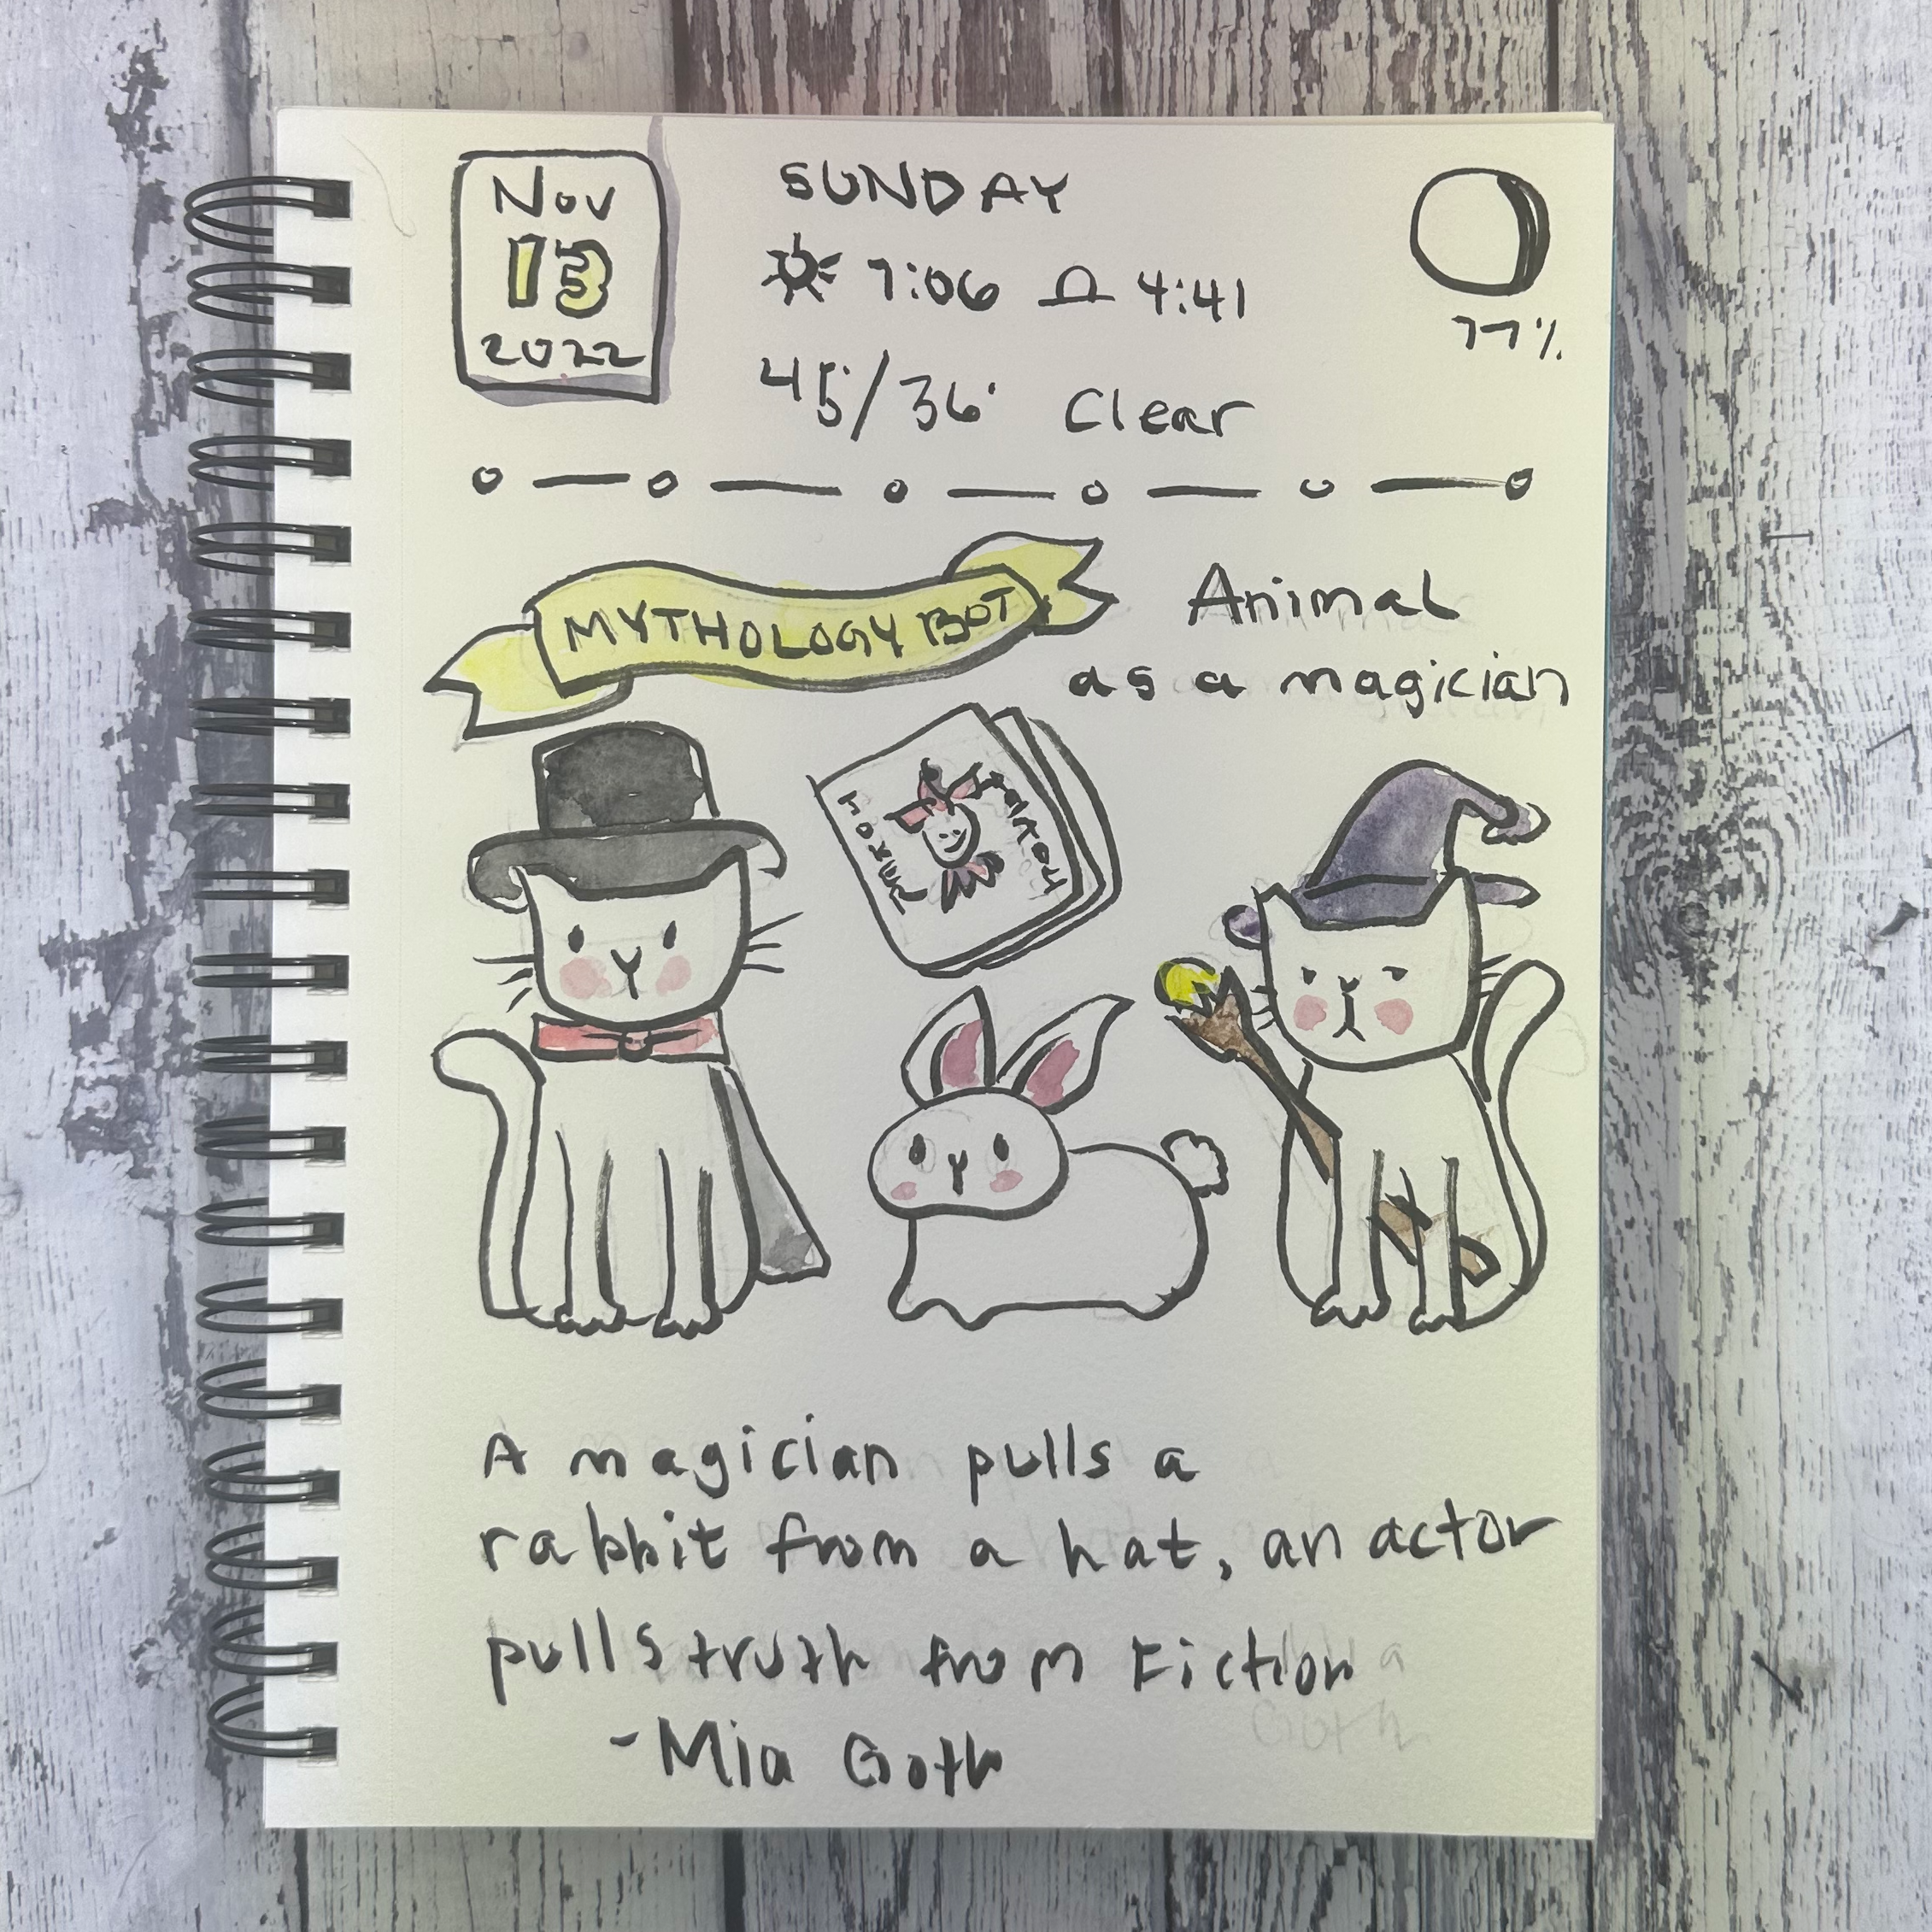 Nov
13
2022
SUNDAY
7:06 4:41
45/36° Clear
77%
MYTHOLOGY BOT
Animal
as a magician
A magician pulls a
rabbit from a hat, an actor
pulls truth from Fiction
-Mia Goth
Goth